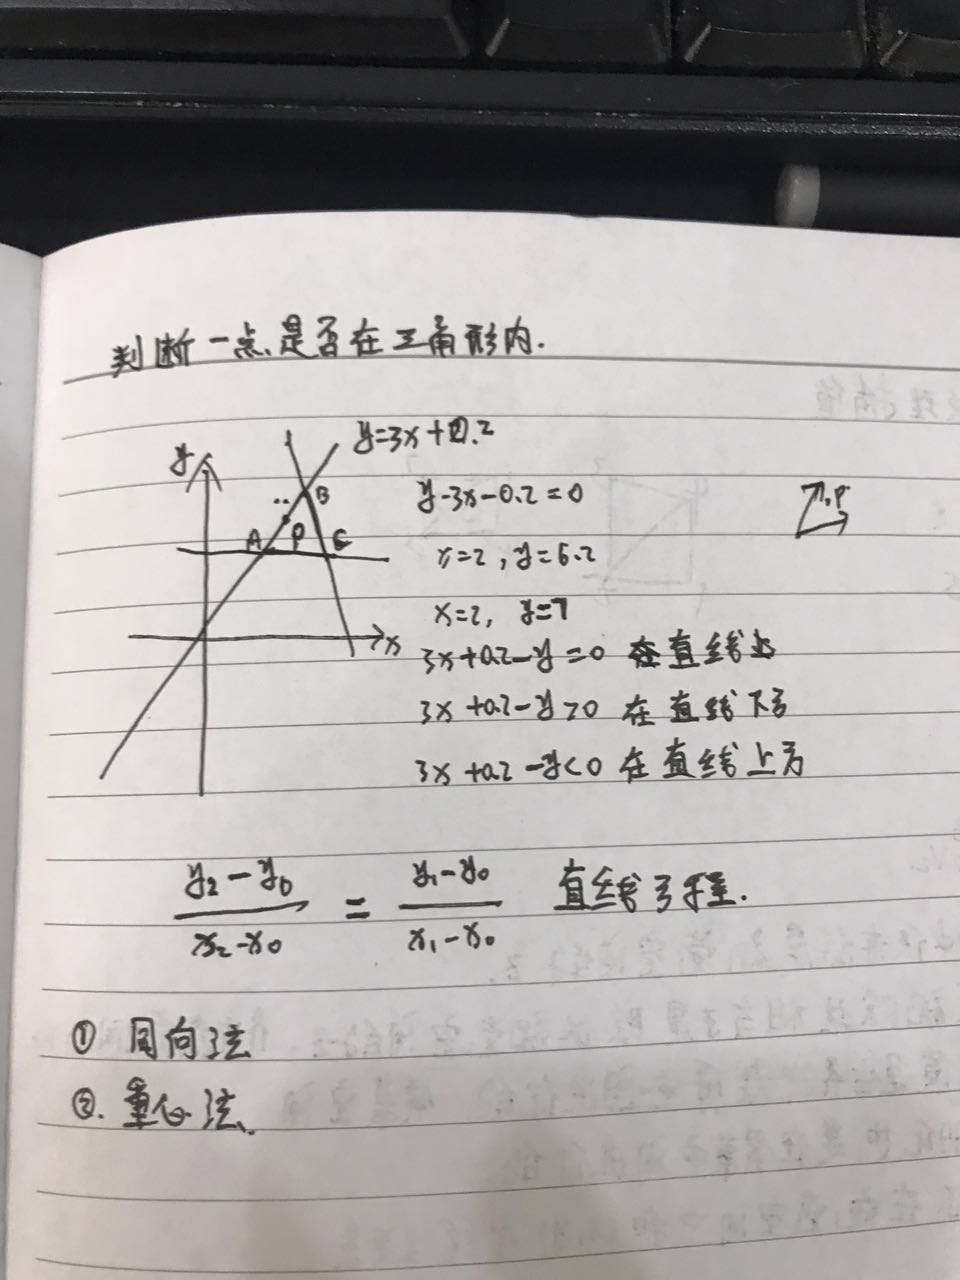 判断一点是否在三角形内.
y
y=3x+0.2
B
A
P
C
x
y-3x-0.2=0
x=2, y=6.2
x=2, y=7
3x+0.2-y=0 在直线上
3x+0.2-y>0 在直线下方
3x+0.2-y<0 在直线上方
P
y₂-y₀ / x₂-x₀ = y₁-y₀ / x₁-x₀ 直线方程.
① 同向法
②. 重心法